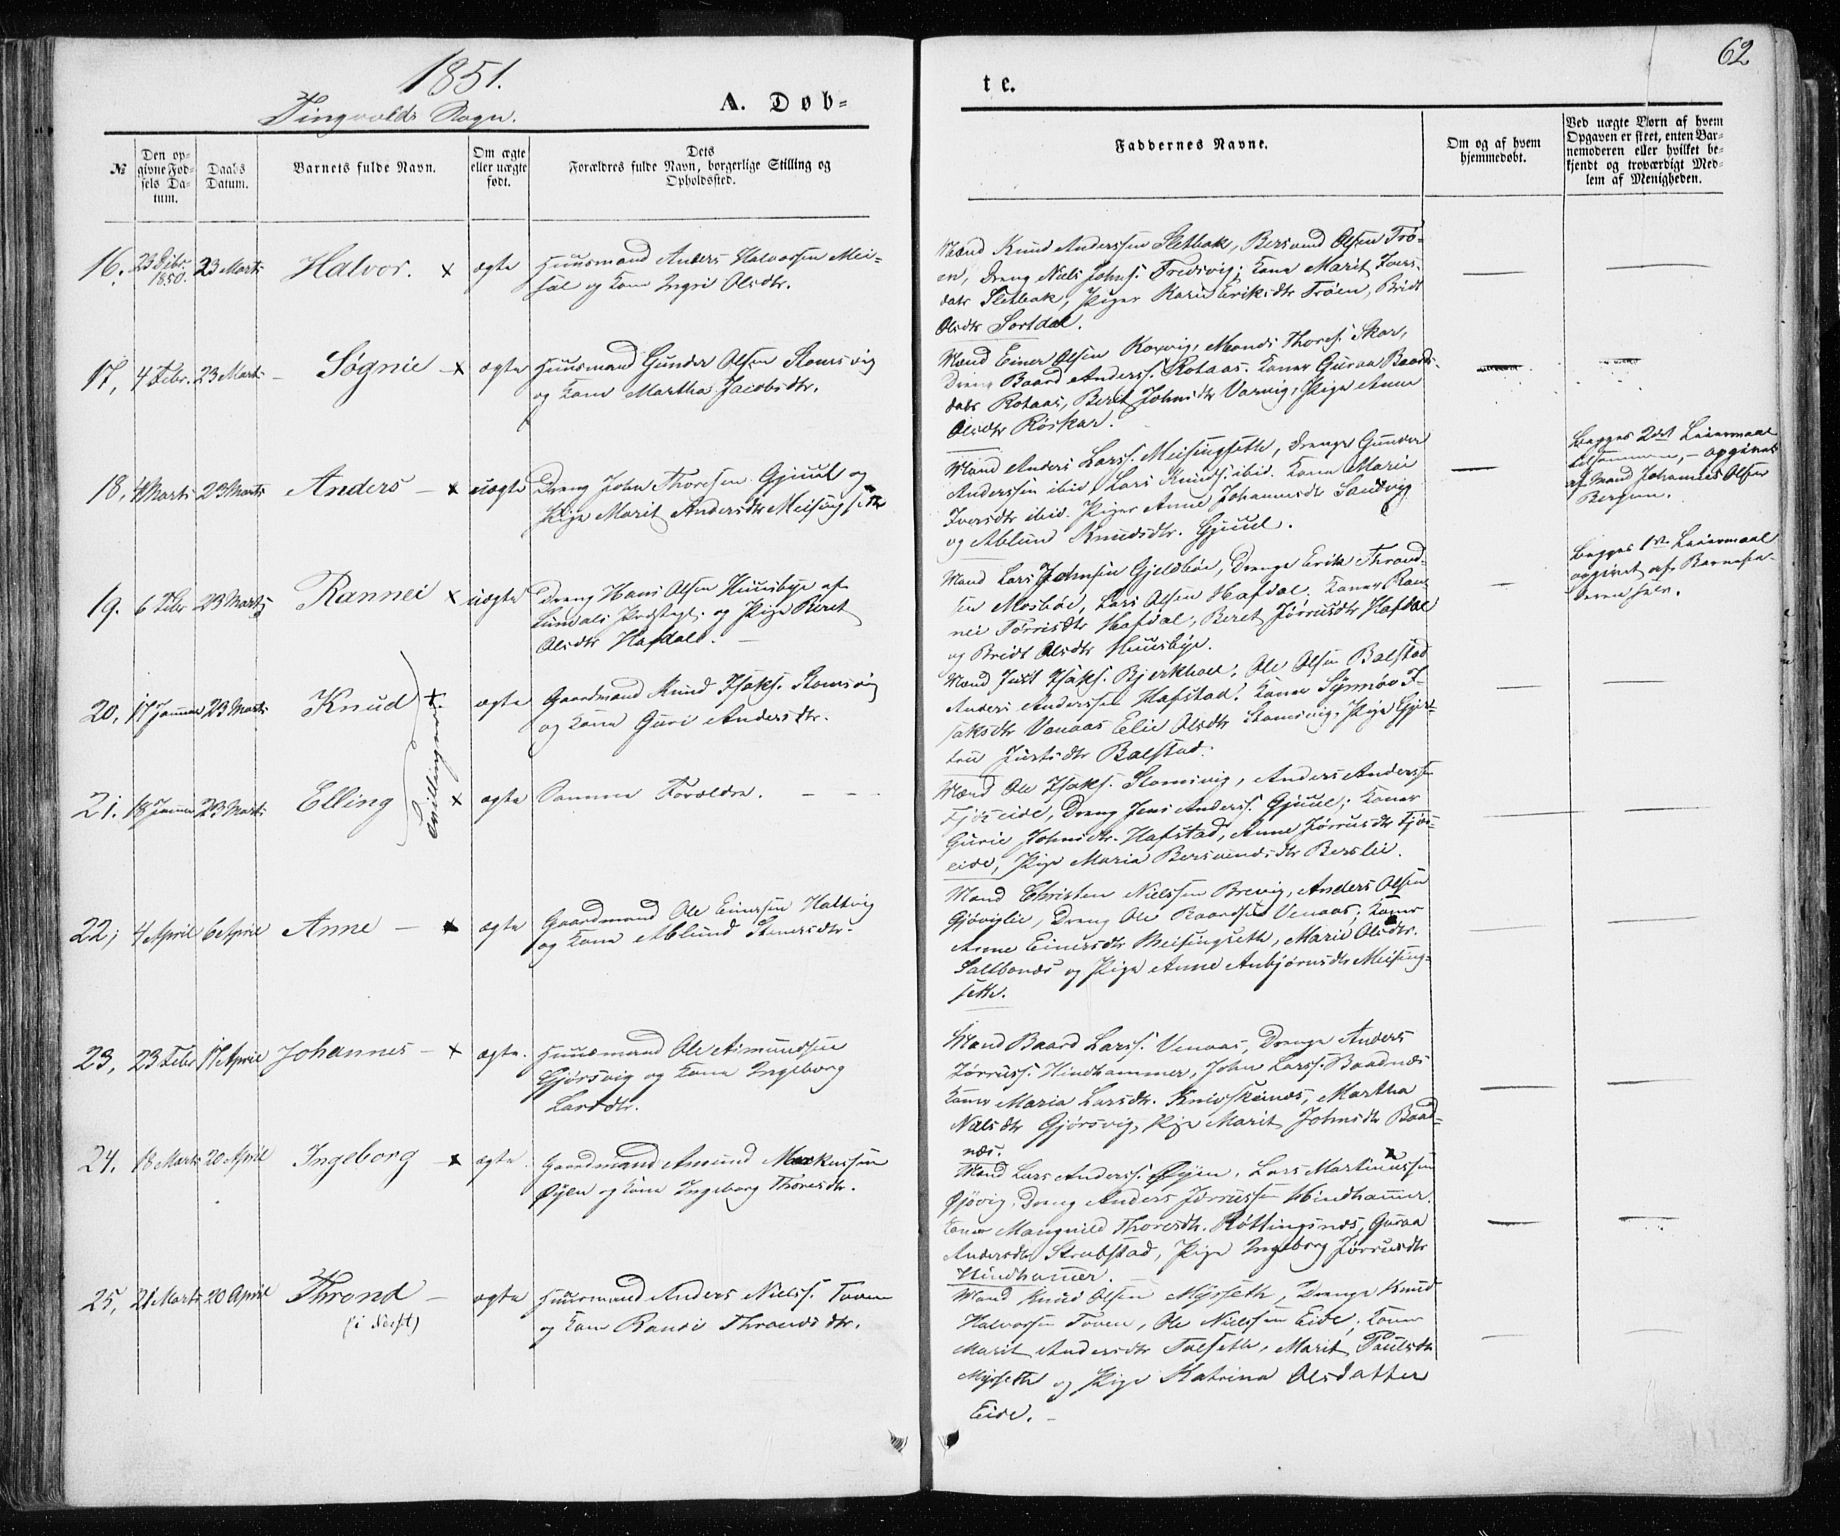 1851.
Tingvolds Sogn.
A. Døb-
te.
62
№
Den op-
givne Fød-
sels Da-
tum.
Daabs
Datum.
Barnets fulde Navn.
Om ægte
eller uægte
født.
Dets
Forældres fulde Navn, borgerlige Stilling og
Opholdsted.
Faddernes Navne.
Om og af hvem
hjemmedøbt.
Ved uægte Børn af hvem
Opgaven er skeet, enten Bar-
nemoderen eller hvilket be-
kjendt og troværdigt Med-
lem af Menigheden.
16. 23 Dcbr. 1850. 23 Marts Halvor. x ægte
Huusmand Anders Halvorsen Mei-
sal og Kone Ingri Olsdtr.
Mænd Knud Anderssen Sletbak, Bersvend Olsen Trø-
en, Dreng Niels Johns. Fredsvig; Kone Marit Ivers-
datr Sletbak, Piger Karen Eriksdtr Trøen, Bridt
Olsdtr Sortdal.
17, 4 Febr. 23 Marts – Søgnie – x ægte
Huusmand Gunder Olsen Stomsvig
og Kone Martha Jacobsdtr.
Mænd Einer Olsen Koxvig, Monds Thores. Skar,
Dreng Baard Anderss. Rotaas. Koner Guraa Baards-
datr Rotaas, Berit Johnsdtr Varvig, Pige Anne
Olsdtr Röskar.
18, 4 Marts 23 Marts Anders – x uægte
Dreng John Thoresen Gjuul og
Pige Marit Andersdtr Meisingsetr
Mænd Anders Larss. Meisingseth, Drenge Gunder
Anderssen ibid, Lars Knuds. ibid. Kone Marie
Iversdtr ibid. Piger Anne Johannesdtr Sandvig
og Ablund Knudsdtr. Gjuul.
Begges 2det Leiermaal
tilsammen, – opgivet
af Mand Johannes Olsen
Bergum.
19. 6 Febr 23 Marts Rannei x uægte
Dreng Hans Olsen Huusbye af
Sundals Præstegj. og Pige Beret
Olsdtr Hafdal. –
Mænd Lars Johnsen Gjeldbøe, Drenge Erik Thrond-
sen Mosbøe, Lars Olsen Hafdal. Koner Ran
nei Tørrisdtr Hafdal, Beret Jørrusdtr Hafdal
og Bridt Olsdtr Huusbye.
Begges 1ste Leiermaal
opgivet af Barnefa-
deren selv.
20, 17 Januar 23 Marts Knud x ægte
Gaardmand Knud Isaks. Stomsvig
og Kone Guri Andersdtr.
Mænd Just Isaks. Bjerkhoel, Ole Olsen Balstad
Anders Anderssen Hafstad. Koner Synnøv I-
saksdtr Venaas Elie Olsdtr Stomsvig, Pige Gjer-
tru Justsdtr Balstad.
Tvillinger.
21. 18 Januar 23 Marts Elling x ægte
Samme Forældre. – – –
Mænd Ole Isaks. Stomsvig, Anders Anderssen
Fjøseide, Dreng Jens Anderss. Gjuul; Koner
Gurie Johnsdtr. Hafstad, Anne Jørrusdtr Fjøs-
eide, Pige Maria Bersvendsdtr Berslie.
22, 4 April 6 April Anne – x ægte
Gaardmand Ole Einersen Holtvig
og Kone Ablund Stenersdtr.
Mænd Christen Nielssen Brevig, Anders Olsen
Gjøviglie, Dreng Ole Baardsen Venaas; Koner
Anne Einersdtr Meisingseth, Marie Olsdtr.
Saltbones og Pige Anne Anbjørnsdtr Meising-
seth.
23, 23 Febr 17 April Johannes – x ægte.
Huusmand Ole Asmundsen
Gjørsvig og Kone Ingeborg
Larsdtr.
Mænd Baard Larss. Venaas, Drenge Anders
Jørruss. Hindhammer, John Larss. Baadnæs
Koner Maria Larsdtr. Knivskinæs, Martha
Nilsdtr Gjørsvig, Pige Marit Johnsdtr Baad-
næs.
24. 18 Marts 20 April Ingeborg – x ægte
Gaardmand Amund Markussen
Øyen og Kone Ingeborg Thoresdtr.
Mænd Lars Anderss. Øyen, Lars Martinussen
Gjøvig, Dreng Anders Jørrussen Hindhamer.
Koner Mangnild Thoresdtr. Røttingsnæs, Guraa
Andersdtr Strubstad, Pige Ingeborg Jørrusdtr
Hindhamer.
25, 21 Marts 20 April Thrond – ægte
(i Sept)
Huusmand Anders Nielss. Toven
og Kone Randi Throndsdtr.
Mænd Knud Olsen Mysseth, Drenge Knud
Halvorsen Toven, Ole Nielssen Eide, Koner
Marit Andersdtr Talseth, Marit Paulsdtr
Mysseth og Pige Katrina Olsdatter
Eide. –